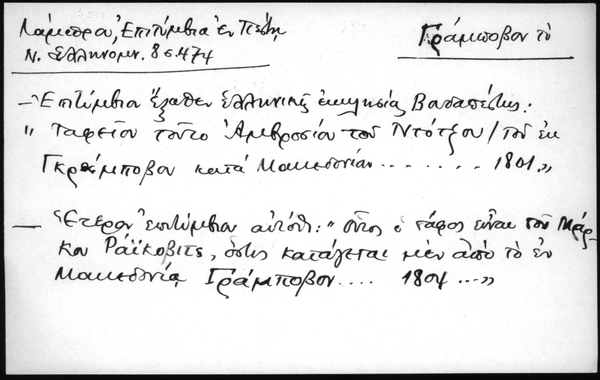 Λάμπρου, Ἐπιτύμβια ἐν Πέστῃ
Γράμποβον τὸ
Ν. Ἑλληνομν. 8 σ. 474
— Ἐπιτύμβια ἔξωθεν Ἑλληνικῆς ἐκκλησίας Βουδαπέστης:
" Ταφεῖον τοῦτο Ἀμβροσίου τοῦ Ντότζου / τοῦ ἐκ
Γκράμποβον κατὰ Μακεδονίαν ....... 1801 "
— Ἕτερον ἐπιτύμβιον αὐτόθι: " οὗτος ὁ τάφος εἶναι τοῦ Μάρ-
κου Ράϊκοβιτς, ὅστις κατάγεται μὲν ἀπὸ τὸ ἐν
Μακεδονίᾳ Γράμποβον .... 1804 ... "